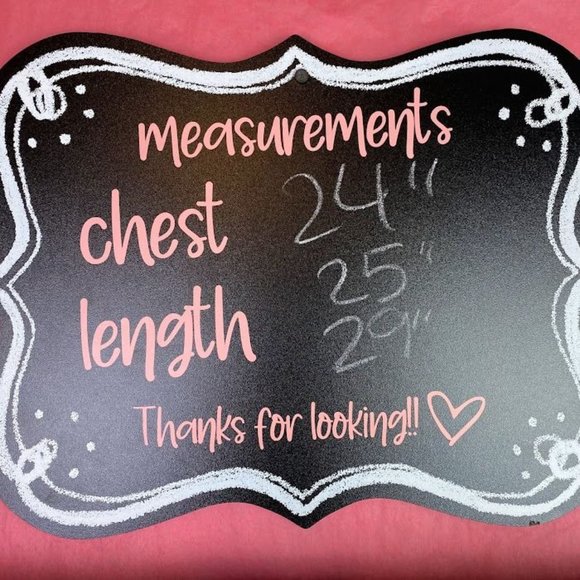 measurements
chest 24"
25"
length 29"
Thanks for looking!!